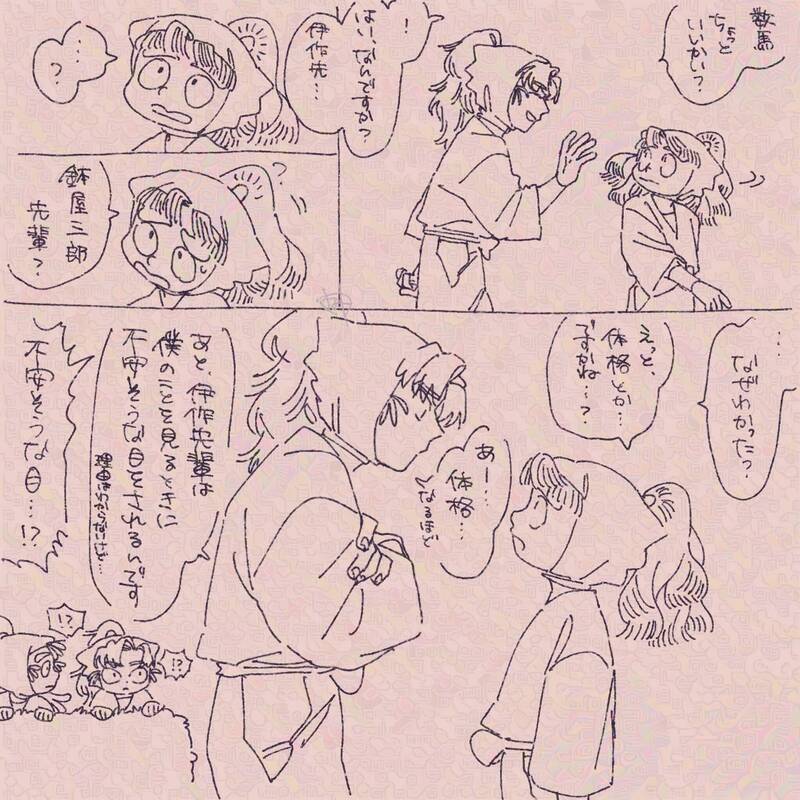 数馬
ちょっと
いいかい?
!
はい、なんですか?
伊作先…
…
?
鉢屋三郎
先輩?
?
…
なぜわかった?
えっと、
体格とか…
ですかね…?
あー…
体格…
なるほど
あと、伊作先輩は
僕のことを見るときに
不安そうな目をされるんです
理由はわからないけど…
不安そうな目…!?
!?
!?